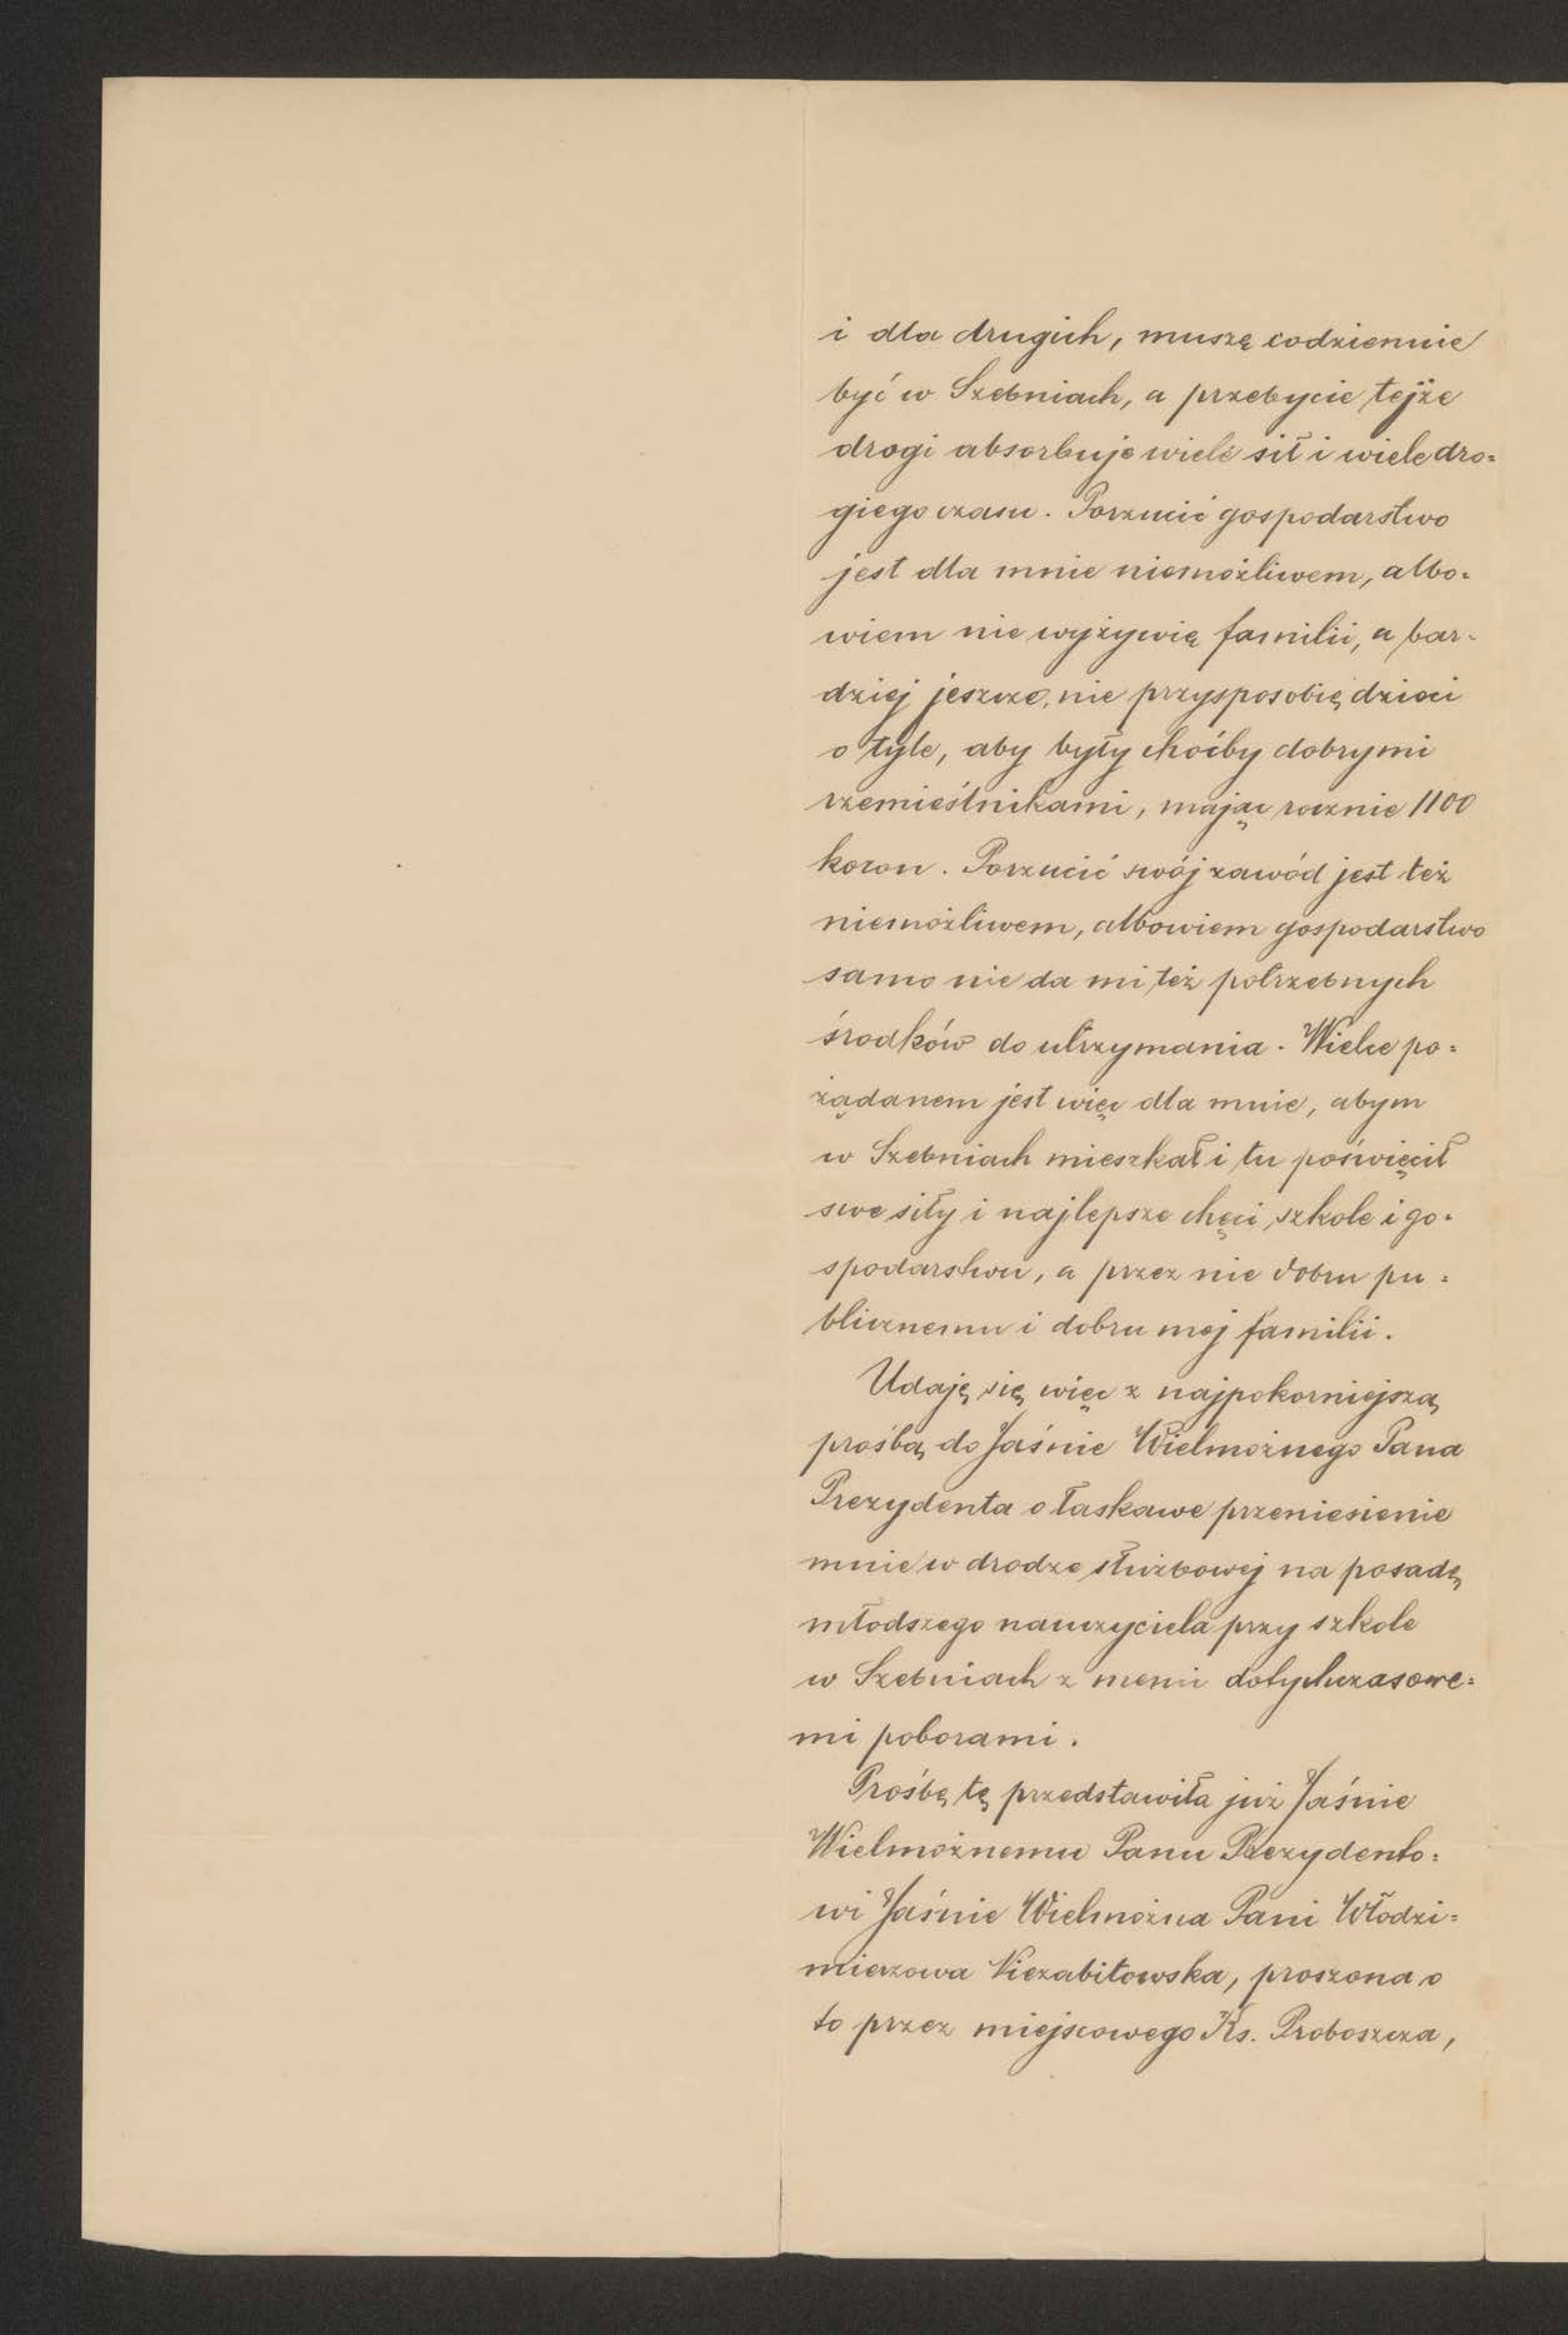 i dla drugich, muszę codziennie
być w Szebniach, a przebycie tejże
drogi absorbuje wiele sił i wiele dro=
giego czasu. Porzucić gospodarstwo
jest dla mnie niemożliwem, albo=
wiem nie wyżywię familii, a bar-
dziej jeszcze, nie przysposobię dzieci
o tyle, aby były choćby dobrymi
rzemieślnikami, mając rocznie 1100
koron. Porzucić swój zawód jest też
niemożliwem, albowiem gospodarstwo
samo nie da mi też potrzebnych
środków do utrzymania. Wielce po=
żądanem jest więc dla mnie, abym
w Szebniach mieszkał i tu poświęcił
swe siły i najlepsze chęci szkole i go=
spodarstwu, a przez nie dobru pu=
blicznemu i dobru mej familii.
Udaję się więc z najpokorniejszą
prośbą do Jaśnie Wielmożnego Pana
Prezydenta o łaskawe przeniesienie
mnie w drodze służbowej na posadę
młodszego nauczyciela przy szkole
w Szebniach z memi dotychczasowe=
mi poborami.
Prośbę tę przedstawiła już Jaśnie
Wielmożnemu Panu Prezydento=
wi Jaśnie Wielmożna Pani Włodzi=
mierzowa Niezabitowska, proszona o
to przez miejscowego Ks. Proboszcza,